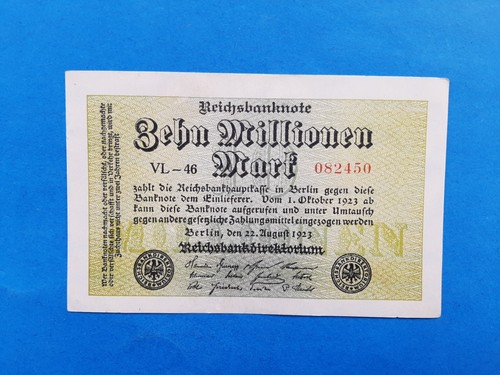 Reichsbanknote
Zehn Millionen
VL-46 Mark 082450
zahlt die Reichsbankhauptkasse in Berlin gegen diese
Banknote dem Einlieferer. Vom 1. Oktober 1923 ab
kann diese Banknote aufgerufen und unter Umtausch
gegen andere gesetzliche Zahlungsmittel eingezogen werden
Berlin, den 22. August 1923
Reichsbankdirektorium
Wer Banknoten nachmacht oder verfälscht, oder nachgemachte
oder verfälschte sich verschafft und in Verkehr bringt, wird mit
Zuchthaus nicht unter zwei Jahren bestraft